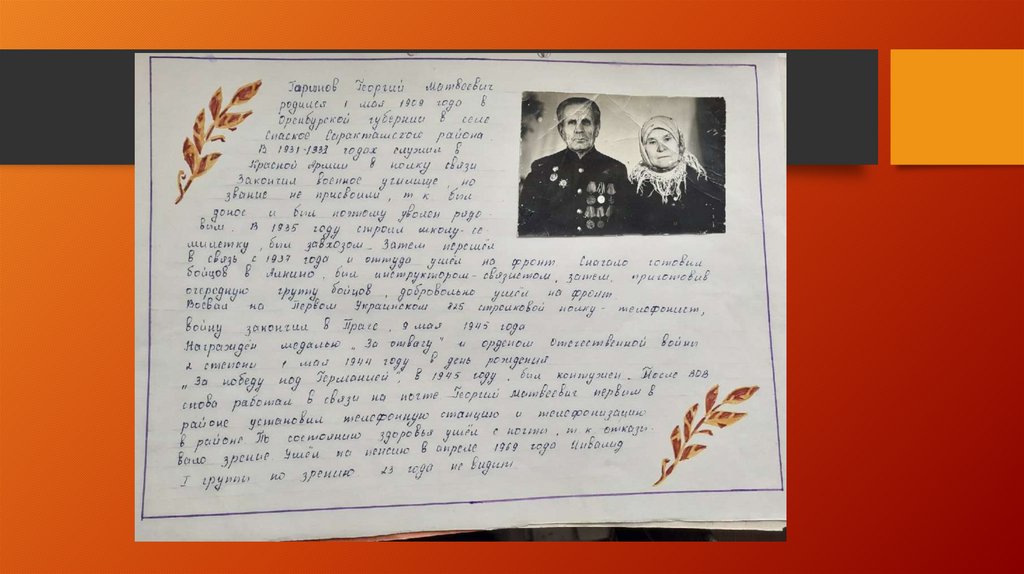 Гарипов Георгий Матвеевич
родился 1 мая 1909 года в
Оренбургской губернии в селе
Спаское Саракташского района.
В 1931-1933 годах служил в
Красной Армии в полку связи
Закончил военное училище, но
звание не присвоили, т.к. был
донос и был поэтому уволен рядо-
вым. В 1935 году строил школу-се-
милетку, был завхозом. Затем перешёл
в связь с 1937 года и оттуда ушёл на фронт. Сначало готовил
бойцов в Алкино, был инструктором-связистом, затем, приготовив
очередную группу бойцов, добровольно ушёл на фронт.
Воевал на Первом Украинском 225 стрелковой полку - телефонист,
войну закончил в Праге, 9 мая 1945 года
Награждён медалью „За отвагу" и орденом Отечественной войны
2 степени 1 мая 1944 году в день рождения.
„За победу под Германией", в 1945 году, был контужен. После ВОВ
снова работал в связи на почте Георгий Матвеевич первым в
районе установил телефонную станцию и телефонизацию
в районе. По состоянию здоровья ушёл с почты, т.к. отказы-
вало зрение Ушёл на пенсию в апреле 1969 года Инвалид
I группы по зрению. 23 года не видит